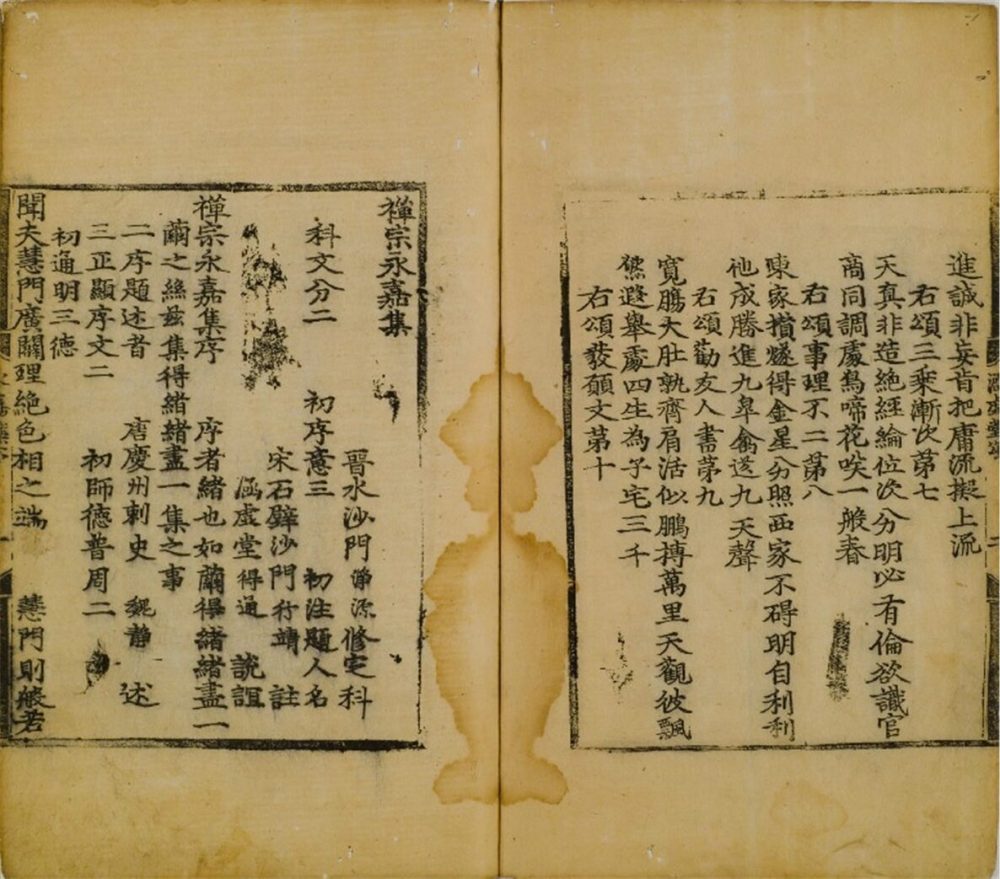 進誠非妄肯把庸流擬上流
右頌三乘漸次第七
天真非造絶經綸位次分明必有倫欲識官
商同調處鳥啼花咲一般春
右頌事理不二第八
東家撗燧得金星分照西家不碍明自利利
他成勝進九臯禽送九天聲
右頌勸友人書苐九
寬膓大肚孰齊肩活似鵬搏萬里天觀彼飄
繁難舉處四生為子宅三千
右頌發願文苐十
禪宗永嘉集
晋水沙門 淨源 修㝎科
科文分二 初序意三 初注題人名
宋石壁沙門行靖 註
涵虛堂得通 說誼
禪宗永嘉集序 序者緒也如繭得緒緒盡一
繭之絲玆集得緒緒盡一集之事
二序題述者 唐慶州刺史 魏静 述
三正顯序文二 初師德普周二
初通明三德
聞夫慧門廣闢理絶色相之端 慧門則般若